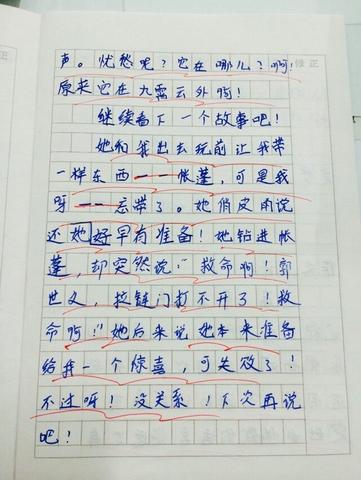 声。忧愁呢？它在哪儿？啊！ 修正
原来它在九霄云外啊！
继续看下一个故事吧！
她们我出去玩前让我带
一样东西——帐蓬，可是我
呀——忘带了。她俏皮的说
还她好早有准备！她钻进帐
蓬，却突然说："救命啊！郭
世义，拉链门打不开了！救
命啊！"她后来说她本来准备
给我一个惊喜，可失败了！
不过呀！没关系！下次再说
吧！